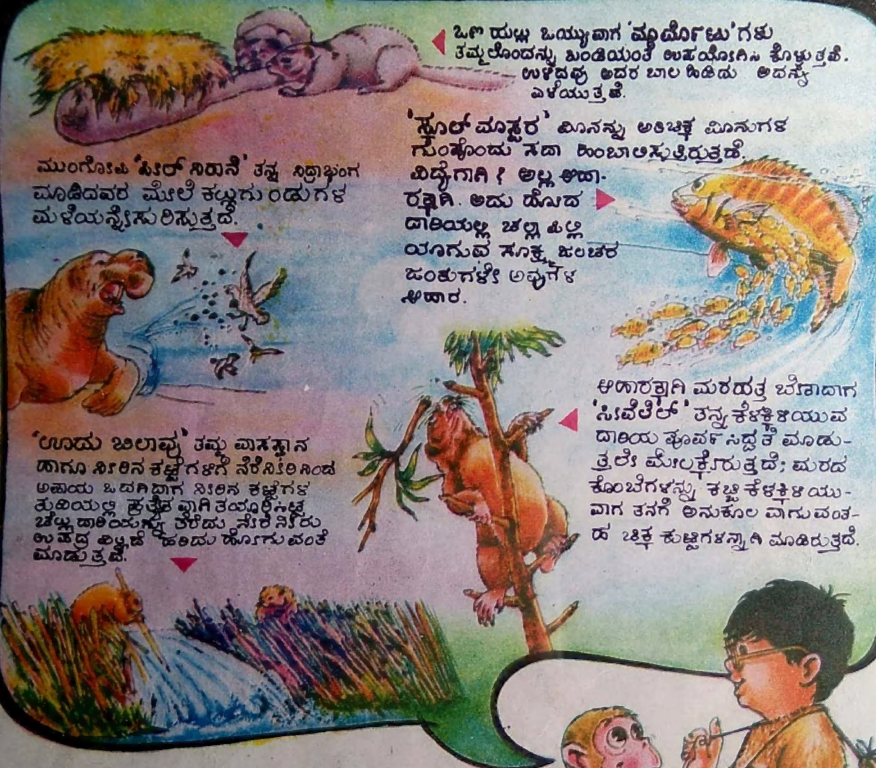 ಒಣ ಹುಲ್ಲು ಒಯ್ಯುವಾಗ 'ಮಾರ್ಮೊಟು'ಗಳು
ತಮ್ಮಲೊಂದನ್ನು ಬಂಡಿಯಂತೆ ಉಪಯೋಗಿಸಿ ಕೊಳ್ಳುತ್ತವೆ.
ಉಳಿದವು ಅದರ ಬಾಲ ಹಿಡಿದು ಅದನ್ನು
ಎಳೆಯುತ್ತವೆ.
'ಸ್ಕೂಲ್ ಮಾಸ್ಟರ' ಮೀನನ್ನು ಅತಿಚಿಕ್ಕ ಮೀನುಗಳ
ಗುಂಪೊಂದು ಸದಾ ಹಿಂಬಾಲಿಸುತ್ತಿರುತ್ತದೆ.
ವಿದ್ಯೆಗಾಗಿ? ಅಲ್ಲ ಆಹಾ-
ರಕ್ಕಾಗಿ. ಅದು ಹೋದ
ದಾರಿಯಲ್ಲಿ ಚಲ್ಲಾ ಪಿಲ್ಲಿ
ಯಾಗುವ ಸೂಕ್ಷ್ಮ ಜಲಚರ
ಜಂತುಗಳೇ ಅವುಗಳ
ಆಹಾರ.
ಮುಂಗೋಪಿ ತನ್ನ ನಿದ್ರಾಭಂಗ
ಮಾಡಿದವರ ಮೇಲೆ ಕಲ್ಲುಗುಂಡುಗಳ
ಮಳೆಯನ್ನೇ ಸುರಿಸುತ್ತದೆ.
ಆಹಾರಕ್ಕಾಗಿ ಮರಹತ್ತ ಬೇಕಾದಾಗ
'ಸೀವೆಲೆಲ್' ತನ್ನ ಕೆಳಕ್ಕಿಳಿಯುವ
ದಾರಿಯ ಪೂರ್ವ ಸಿದ್ಧತೆ ಮಾಡು-
ತ್ತಲೇ ಮೇಲಕ್ಕೇರುತ್ತದೆ; ಮರದ
ಕೊಂಬೆಗಳನ್ನು ಕಚ್ಚಿ ಕೆಳಕ್ಕಿಳಿಯು-
ವಾಗ ತನಗೆ ಅನುಕೂಲ ವಾಗುವಂತ-
ಹ ಚಿಕ್ಕ ಕುಚ್ಚುಗಳನ್ನಾಗಿ ಮಾಡಿರುತ್ತದೆ.
'ಊದು ಬಿಲಾವು' ತಮ್ಮ ವಾಸಸ್ಥಾನ
ಹಾಗೂ ನೀರಿನ ಕಟ್ಟೆಗಳಿಗೆ ನೆರೆನೀರಿನಿಂದ
ಅಪಾಯ ಒದಗಿದಾಗ ನೀರಿನ ಕಟ್ಟೆಗಳ
ತುದಿಯಲ್ಲಿ ಪ್ರತ್ಯೇಕವಾಗಿ ತಯಾರಿಸಿಟ್ಟ
ಚಿಲ್ಲು ದಾರಿಯನ್ನು ತೆರೆದು ನೆರೆ ನೀರು
ಉಪದ್ರವಿಲ್ಲದೆ ಹರಿದು ಹೋಗುವಂತೆ
ಮಾಡುತ್ತವೆ.